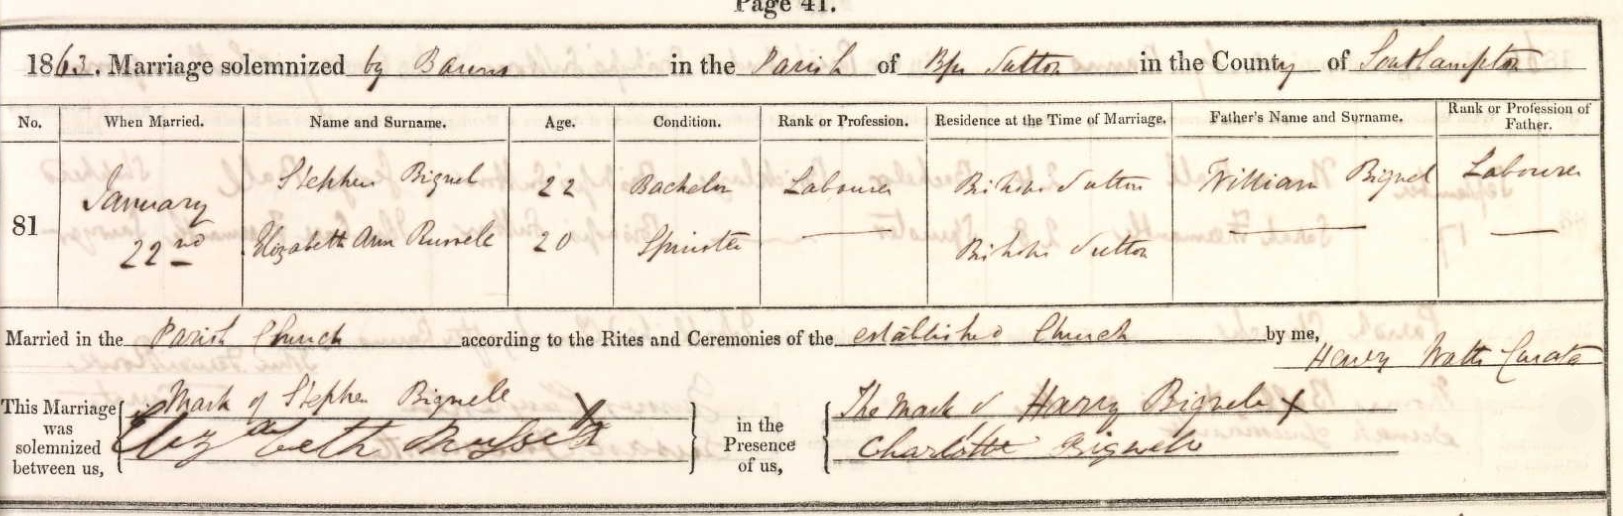 Page 41.
1863. Marriage solemnized by Banns in the Parish of Bps Sutton in the County of Southampton
No. When Married. Name and Surname. Age. Condition. Rank or Profession. Residence at the Time of Marriage. Father's Name and Surname. Rank or Profession of Father.
81 January 22nd Stephen Bignel 22 Bachelor Labourer Bishops Sutton William Bignel Labourer
Elizabeth Ann Russele 20 Spinster — Bishops Sutton — —
Married in the Parish Church according to the Rites and Ceremonies of the established Church by me, Henry Watts Curate
This Marriage was solemnized between us, Mark of Stephen Bignele X in the Presence of us, The mark of Harry Bignele X
Elizabeth Charlotte Bignele